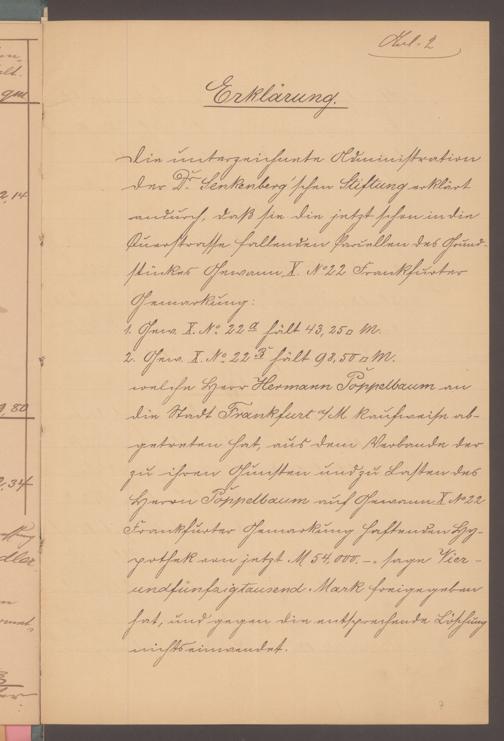 Anl. 2
Erklärung.
Die unterzeichnete Administration
der Dr. Senkenberg'schen Stiftung erklärt
andurch, daß sie die jetzt schon in die
Querstrasse fallenden Parzellen des Grund-
stückes Gewann X. No 22 Frankfurter
Gemarkung:
1. Gew. X. No. 22 a hält 43,25 □ M.
2. Gew. X. No. 22 B hält 98,50 □ M.
welche Herr Hermann Pöppelbaum an
die Stadt Frankfurt a/M kaufweise ab-
getreten hat, aus dem Verbande der
zu ihren Gunsten und zu Lasten des
Herrn Pöppelbaum auf Gewann X No 22
Frankfurter Gemarkung haftenden Hy-
pothek von jetzt M 54,000.-. sage Vier-
undfünfzigtausend Mark freigegeben
hat, und gegen die entsprechende Löschung
nichts einwendet.
2,14
9,80
2,34